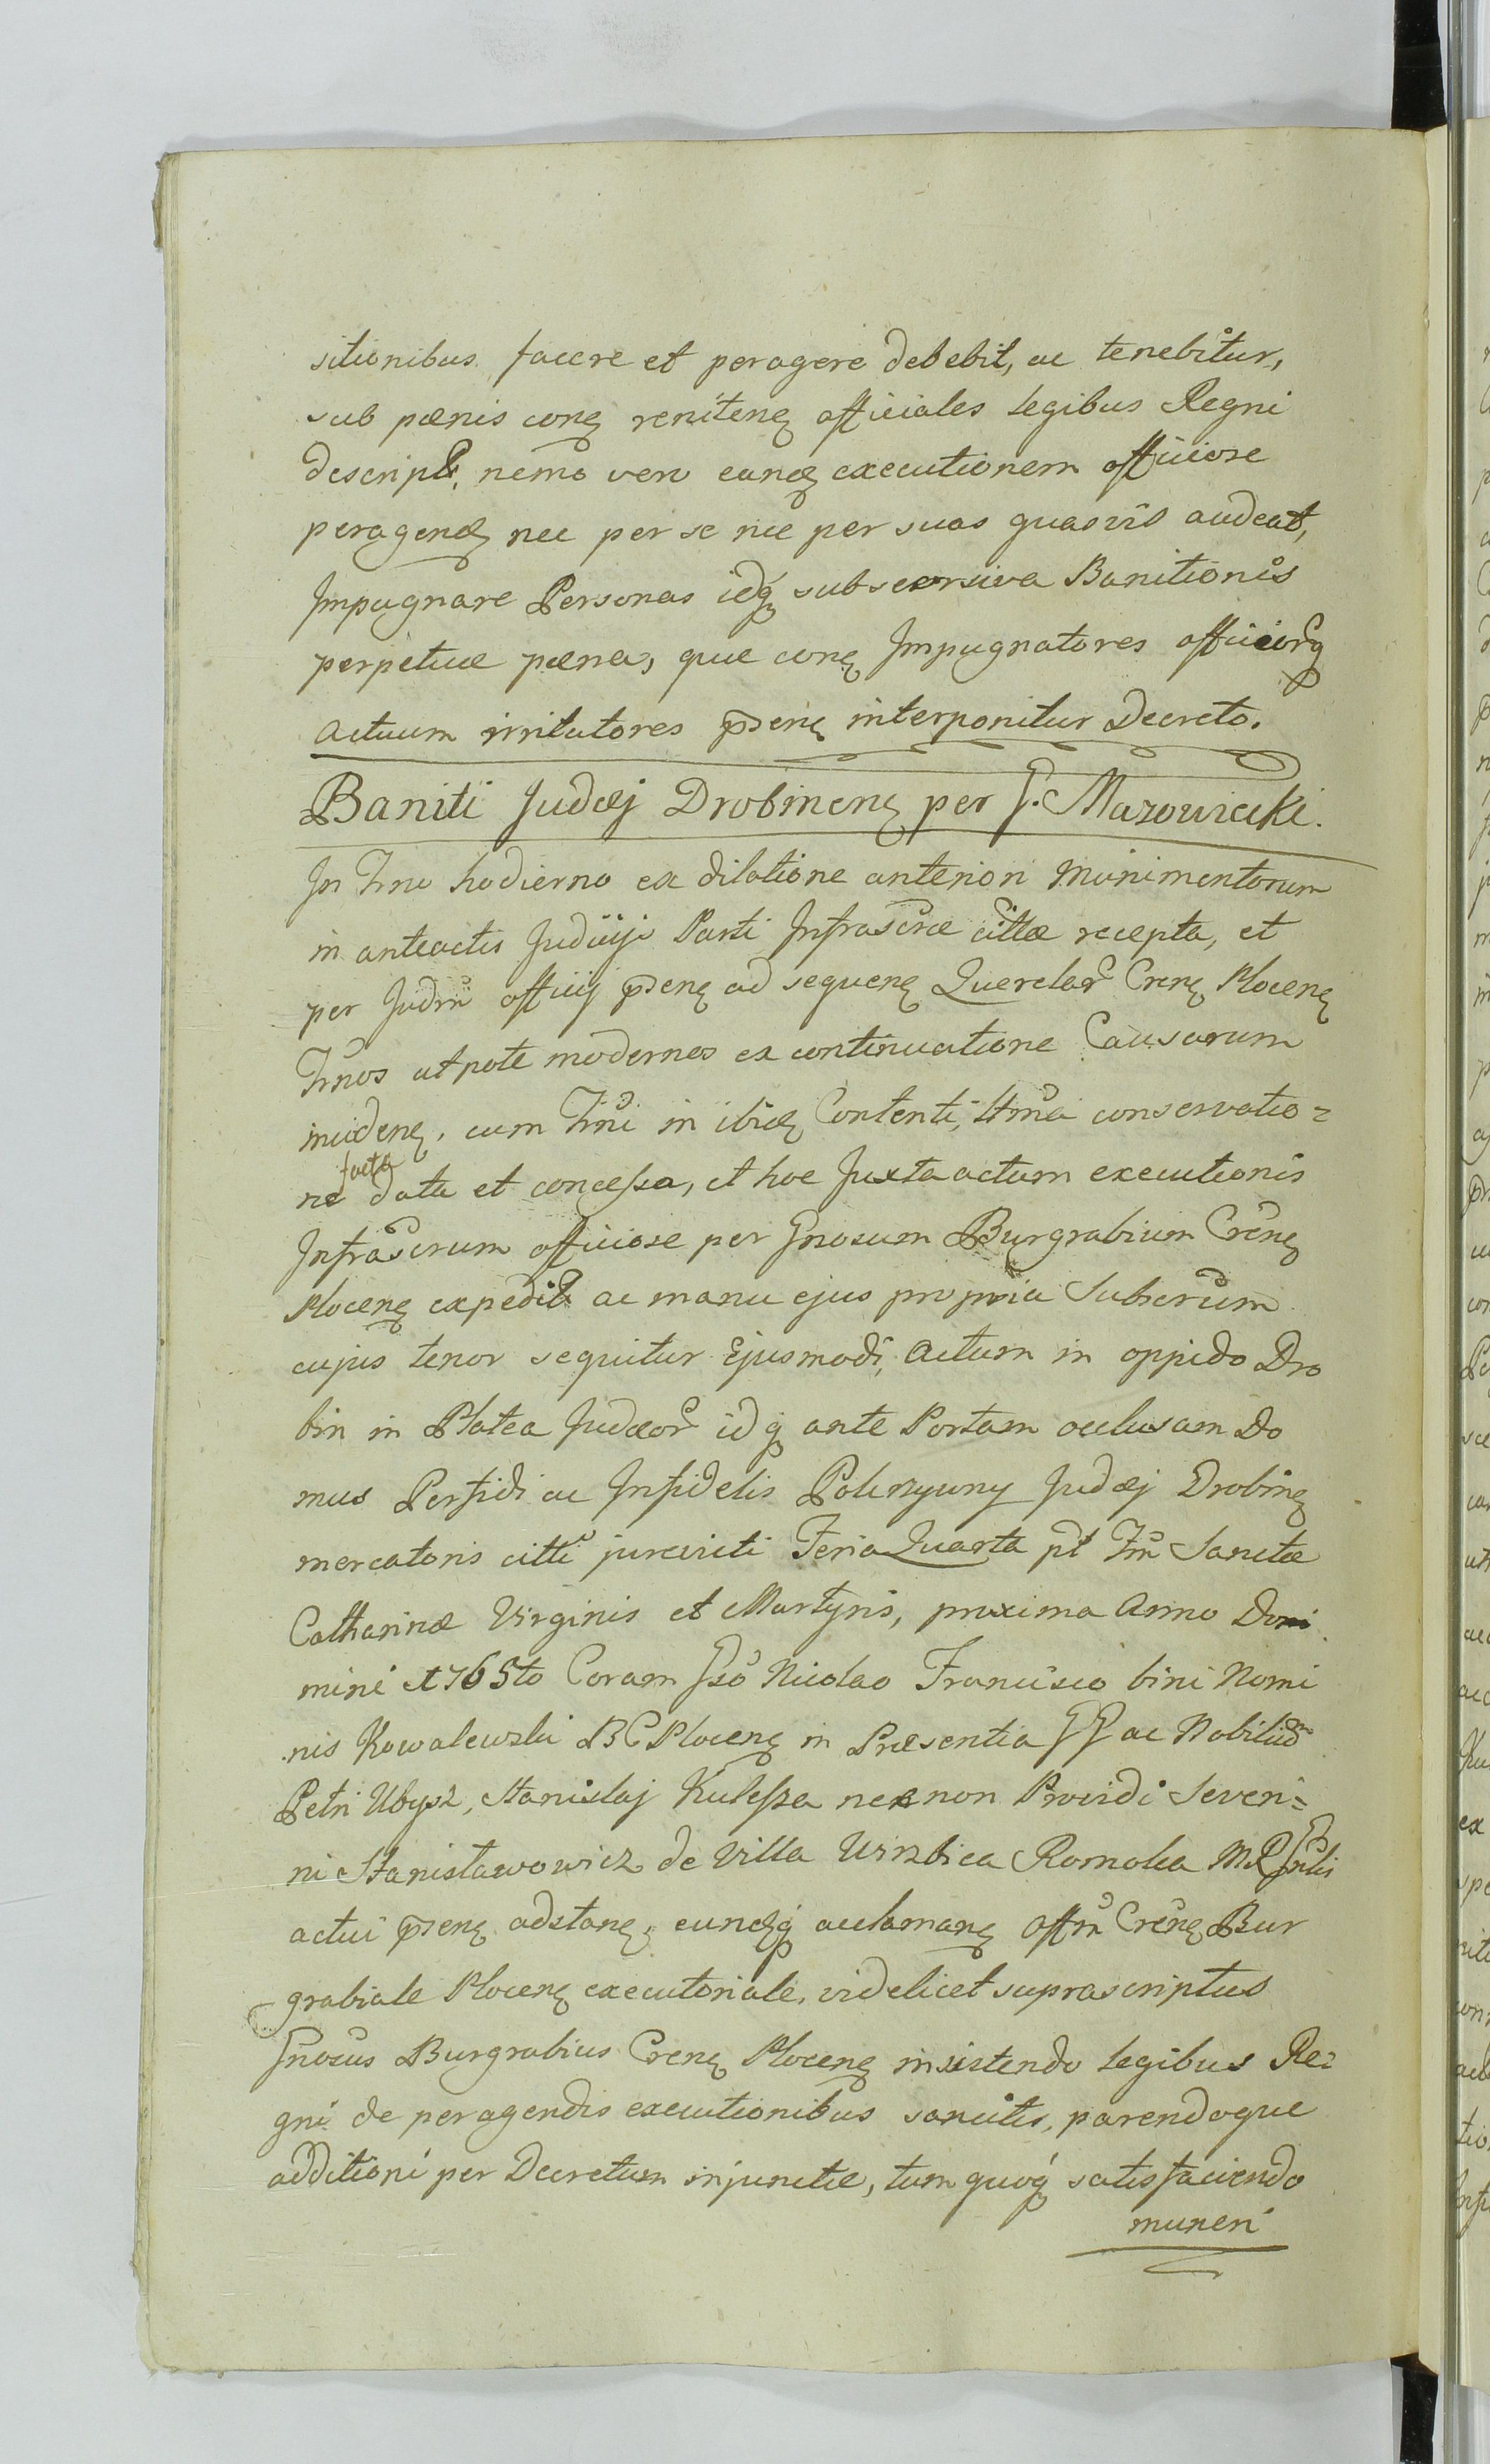 sitionibus facere et peragere debebit, ac tenebitur,
sub pœnis conq renitenq officiales legibus Regni
descript, nemo vero eandq executionem officiose
peragendq nec per se nec per suas quasvis audeat,
Impugnare Personas idq subsecursiva Banitionis
perpetuæ pœna, quæ conq Impugnatores officiorq
actuum irritatores pñsenq interponitur Decreto.
Baniti Judæj Drobinenq per G. Mazowiecki.
In Trno hodierno ex dilatione anteriori Munimentorum
in anteactis Judicijs Parti Infrascræ cittæ recepta, et
per Judm officij pñsenq ad sequenq Querelar Crenq Plocenq
Trnos utpote modernos ex continuatione Causarum
incidenq, cum Trni in ibidq Contenti, attma conservatio=
facta
ne data et concessa, et hoc Juxta actum executionis
Infrascrum officiose per Gnosum Burgrabium Crenq
Plocenq expedit ac manu ejus propria Subscrum
cujus tenor sequitur Ejusmodi, Actum in oppido Dro
bin in Platea Judæor idq ante Portam occlusam Do
mus Perfidi ac Infidelis Judæj Drobinq
mercatoris citti jurevicti Feria Quarta pt Fm Sanctæ
Catharinæ Virginis et Martyris, proxima Anno Do
mini 1765to Coram Gso Nicolao Francisco bini Nomi
nis Kowalewski BC Plocenq in Præsentia GG ac Nobilium
Petri Ubysz, Stanislaj Kulesza necnon Providi Severi=
ni Stanisławowicz de Villa Wirzbica Romoka MR Gnlis
actui pñsenq adstanq, eundqq acclamanq Offm Crenq Bur
grabiale Plocenq executoriale, videlicet suprascriptus
Gnosus Burgrabius Crenq Plocenq insistendo legibus Re=
gni de peragendis executionibus sancitis, parendoque
additioni per Decretum injunctæ, tum quoq satisfaciendo
muneri